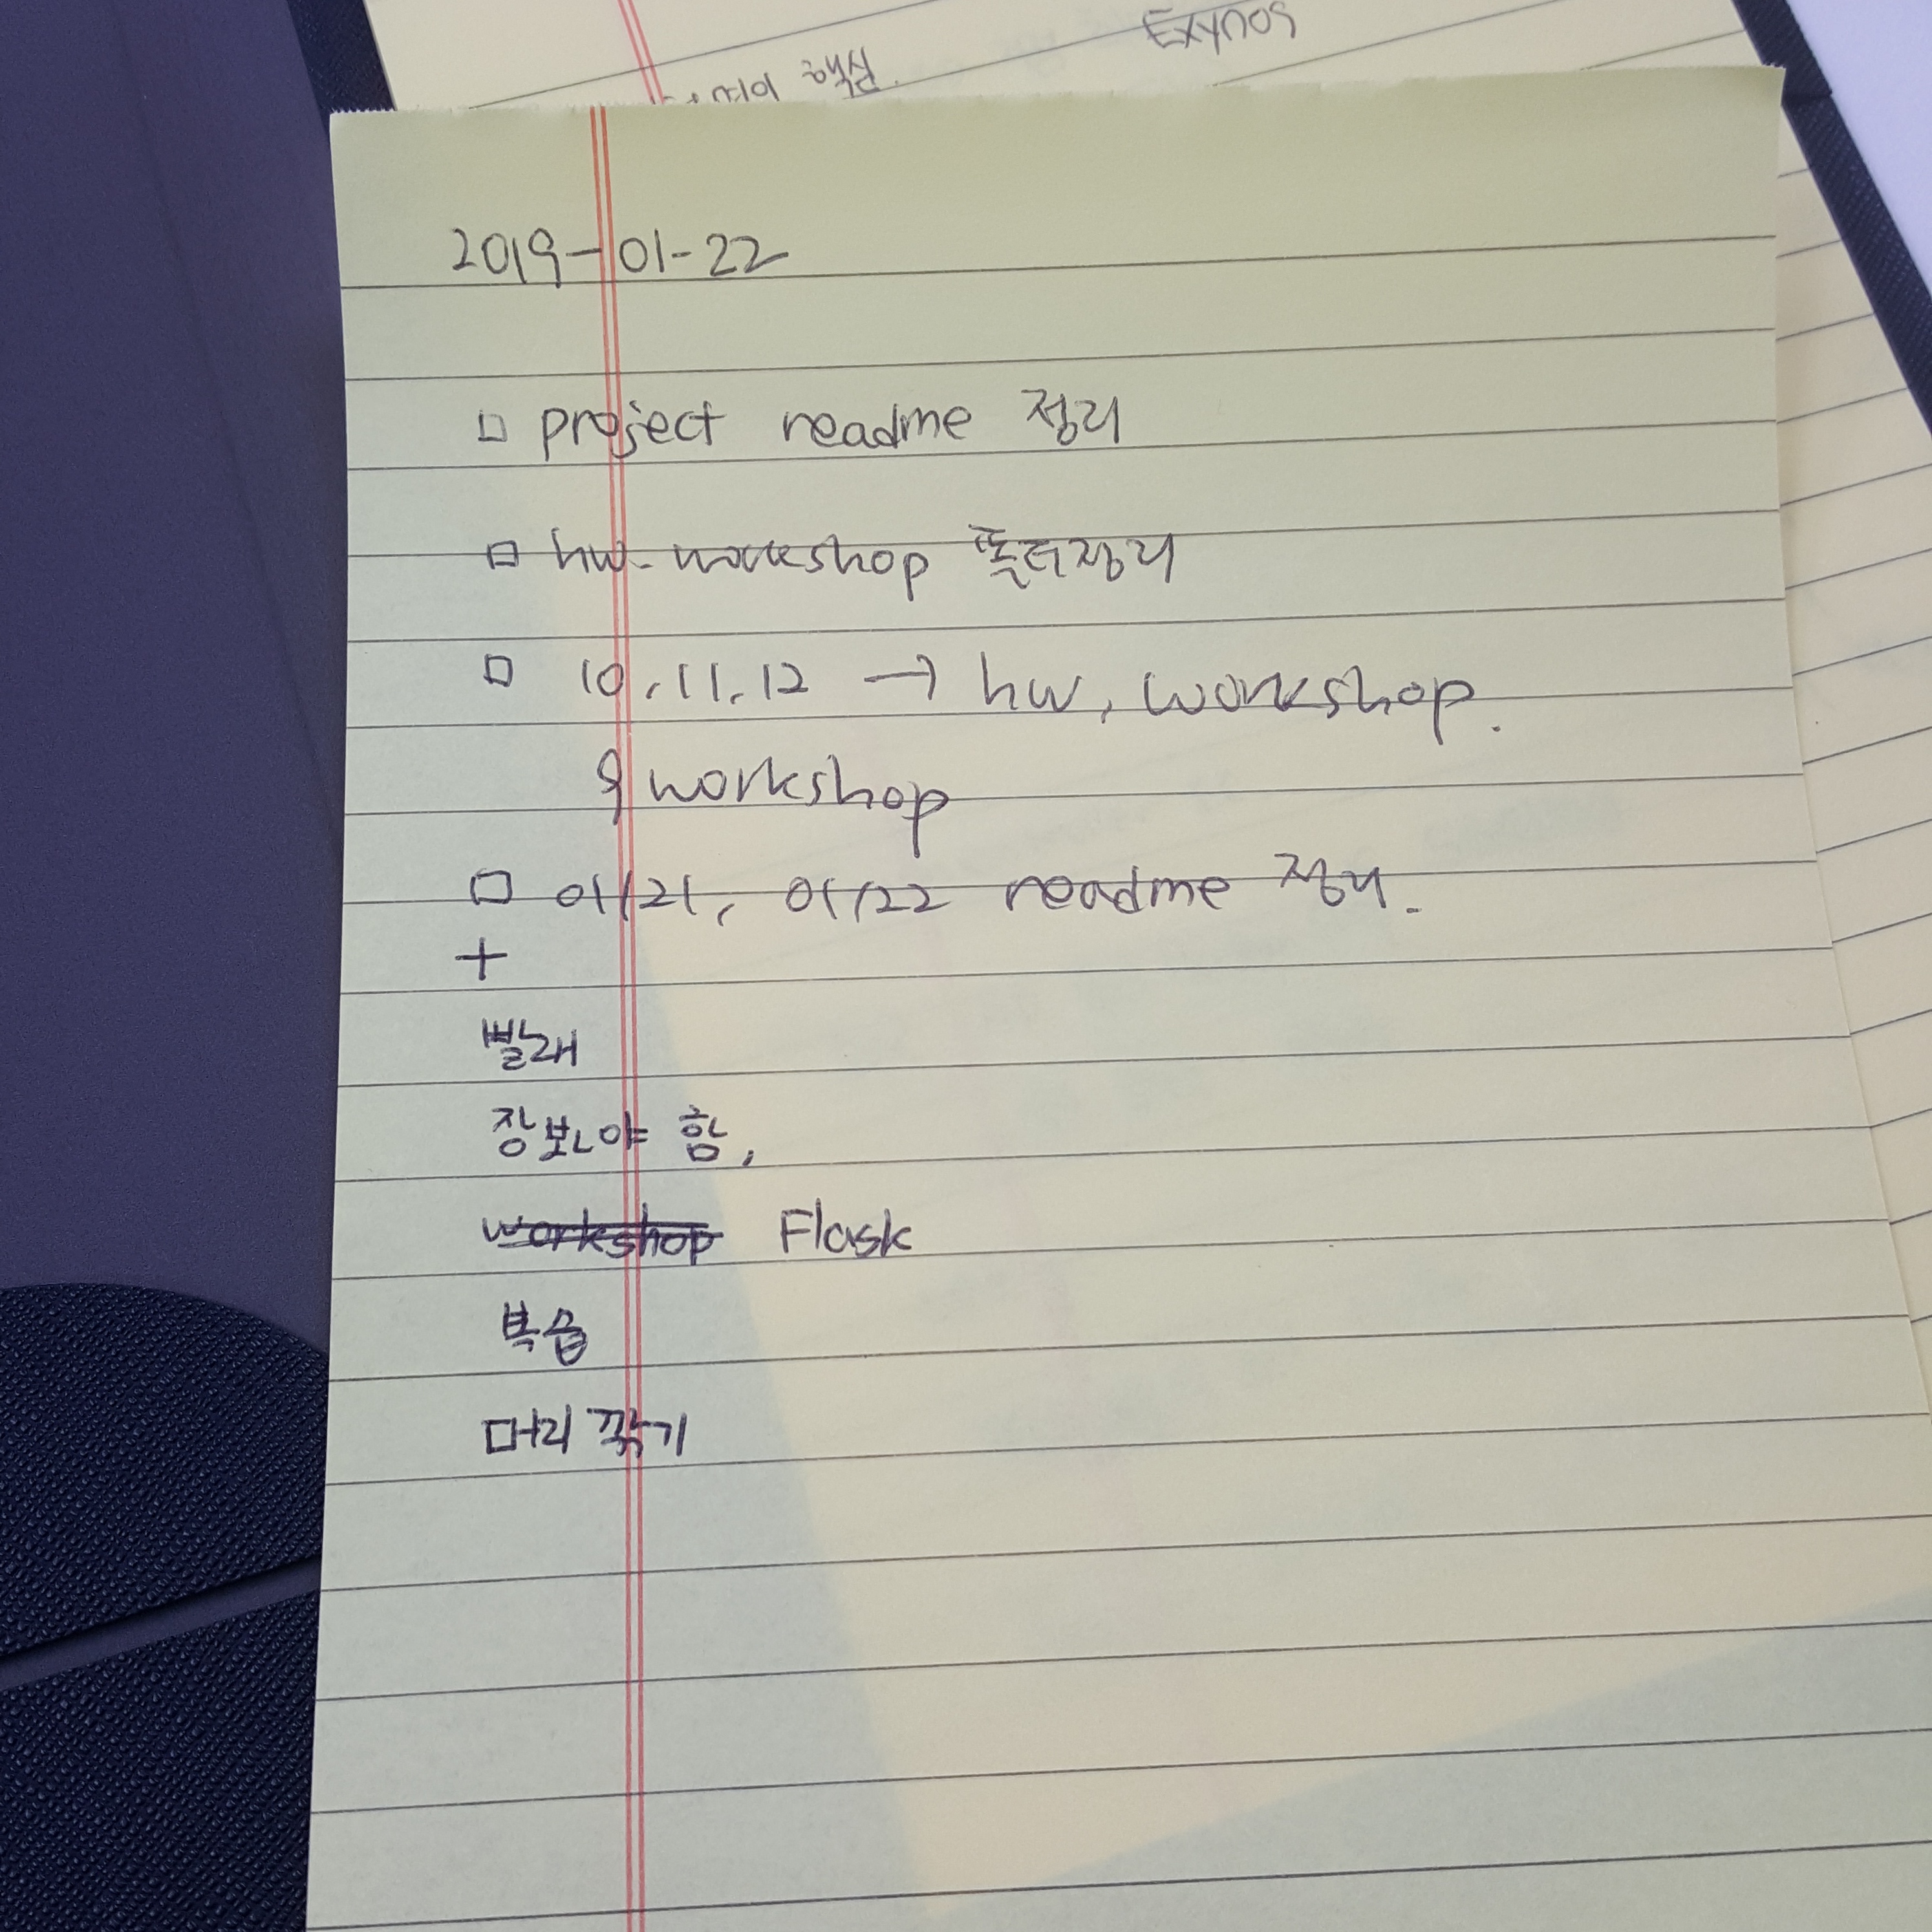 Exynos
핵심.
2019-01-22
□ project readme 정리
□ hw. workshop 폴더정리
□ 10, 11, 12 → hw, workshop.
9 workshop
□ 01/21, 01/22 readme 정리.
+
빨래
장보아야 함,
workshop Flask
복습
머리 깎기